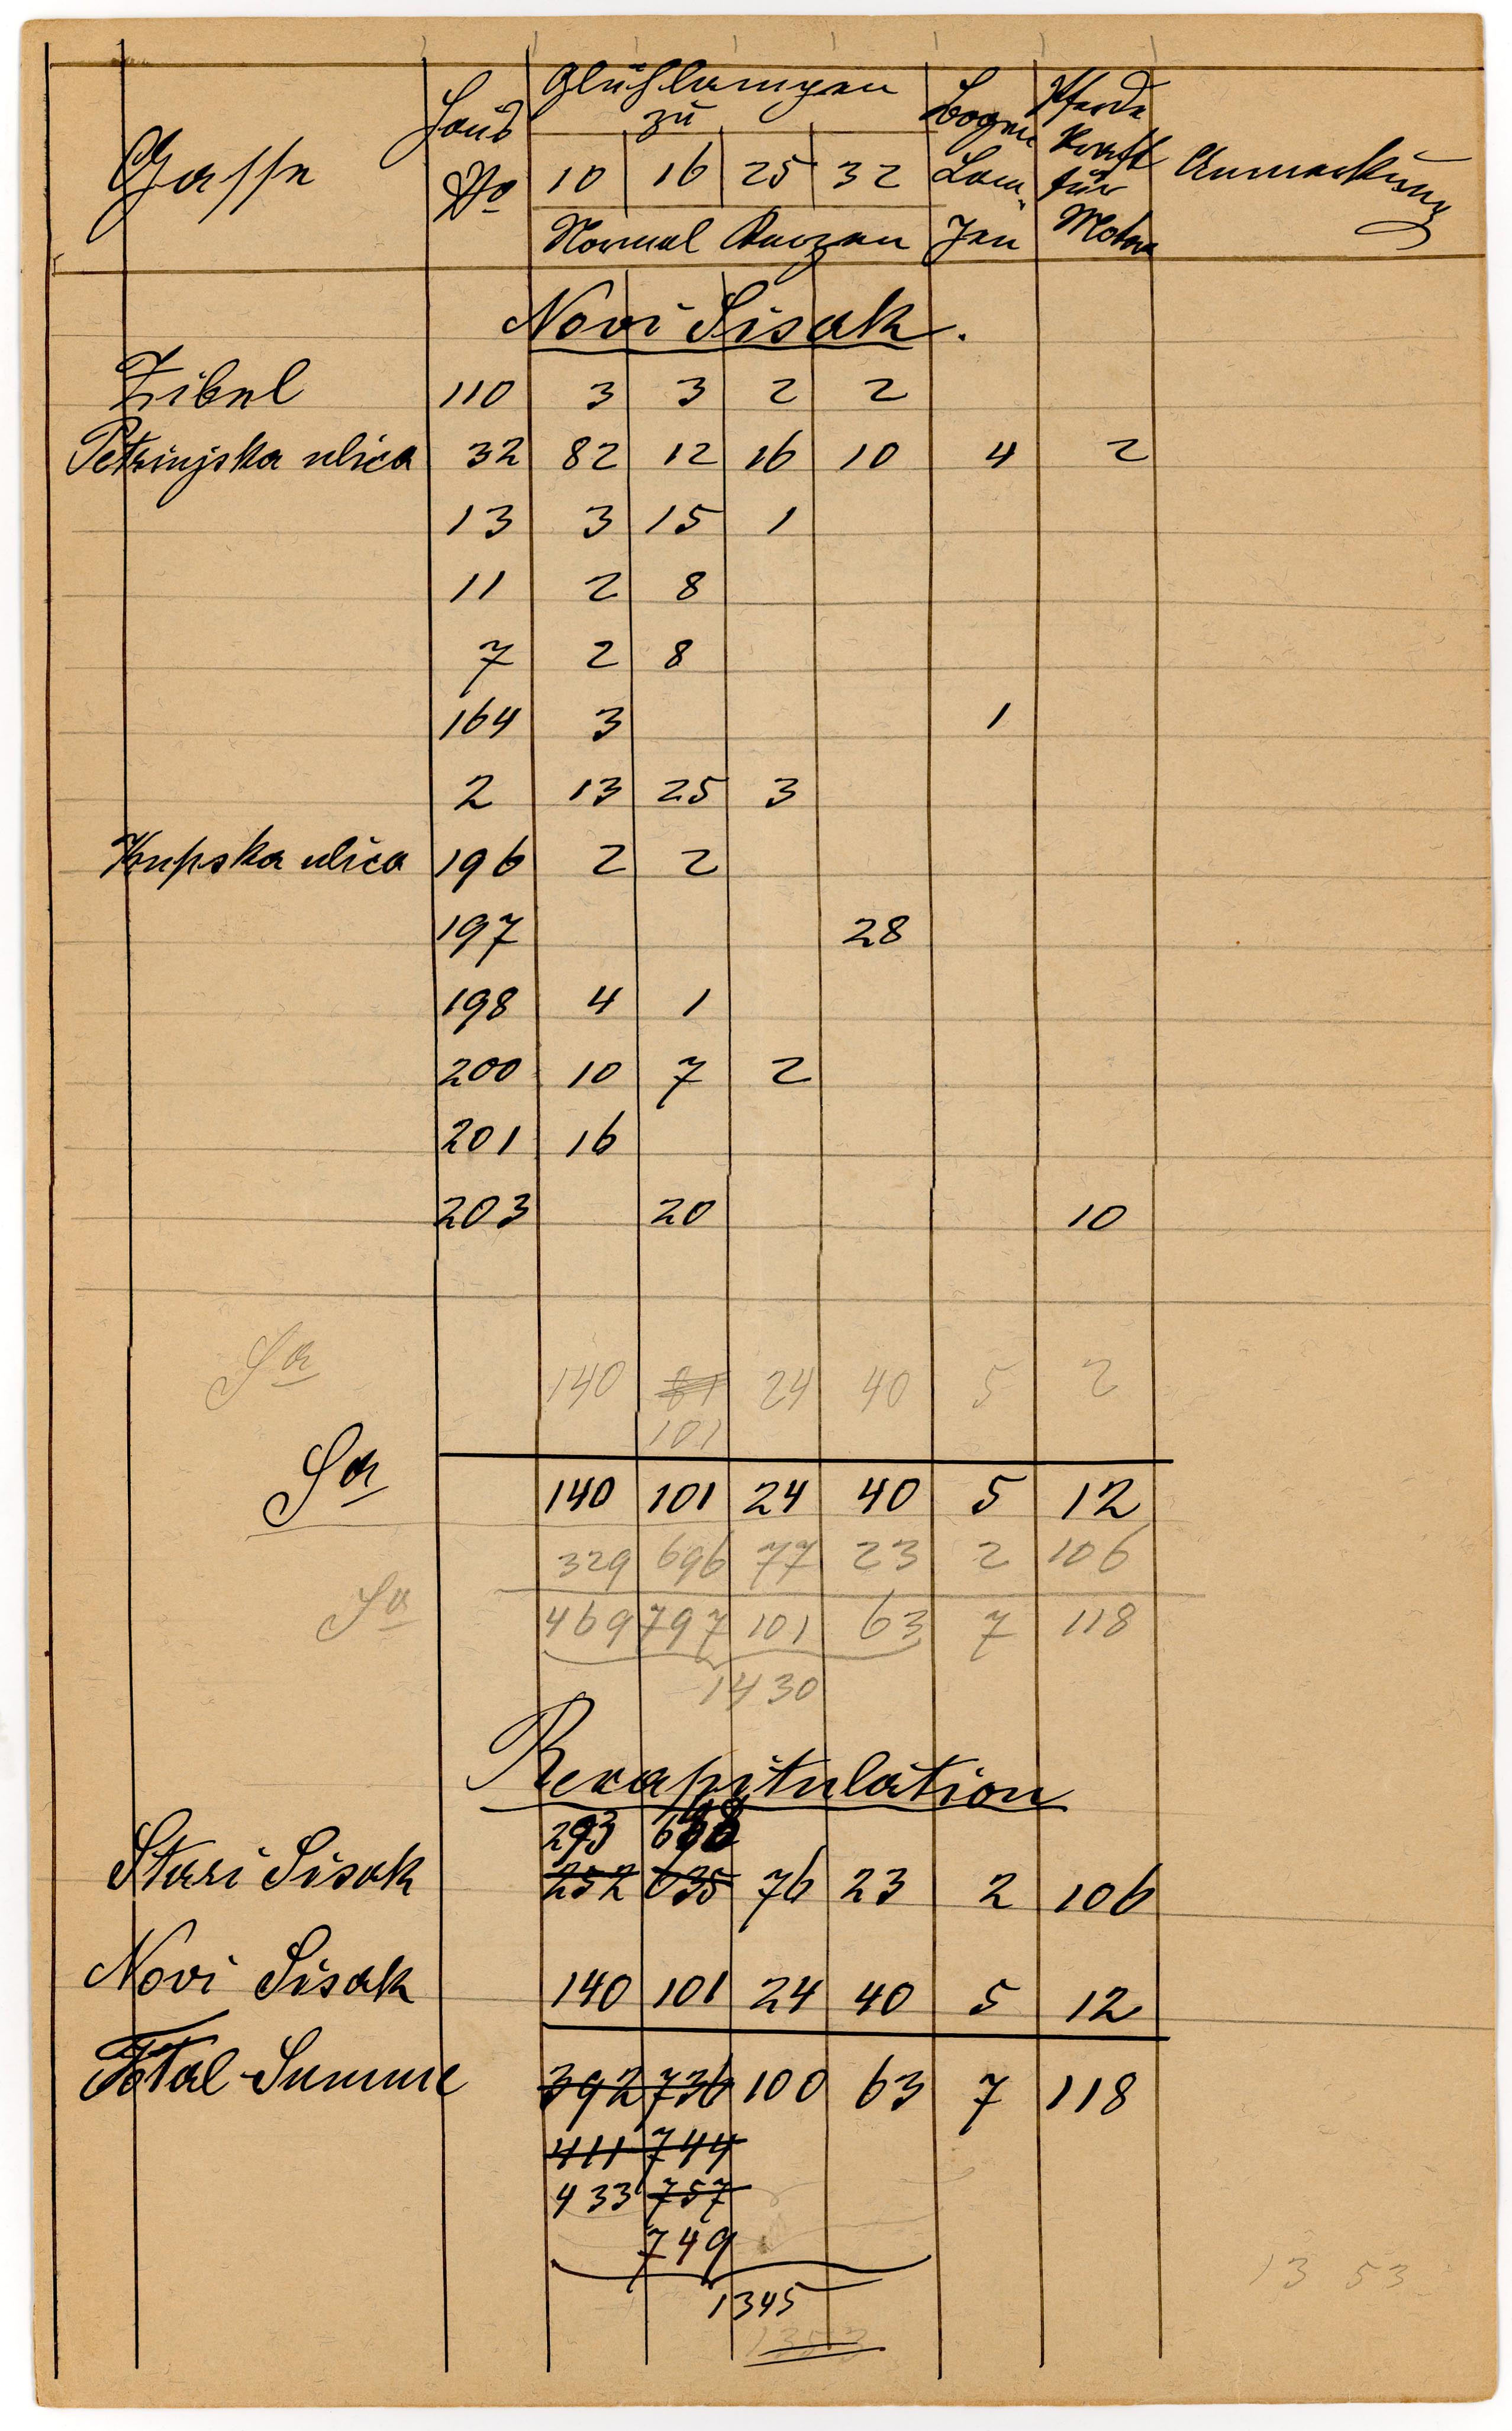 Gasse Haus No Glühlampen zu Bogen Lam- pen Pferde kraft für Motore Anmerkung
10 16 25 32
Normal Kerzen
Novi Sisak.
Zibel 110 3 3 2 2
Petrinjska ulica 32 82 12 16 10 4 2
13 3 15 1
11 2 8
7 2 8
164 3 1
2 13 25 3
Kupska ulica 196 2 2
197 28
198 4 1
200 10 7 2
201 16
203 20 10
Sa 140 81 24 40 5 2
101
Sa 140 101 24 40 5 12
329 696 77 23 2 106
Sa 469 797 101 63 7 118
1430
Recapitulation
293 648
Stari Sisak 252 635 76 23 2 106
Novi Sisak 140 101 24 40 5 12
Total Summe 392 736 100 63 7 118
411 744
433 757
749
1345
1353
1353